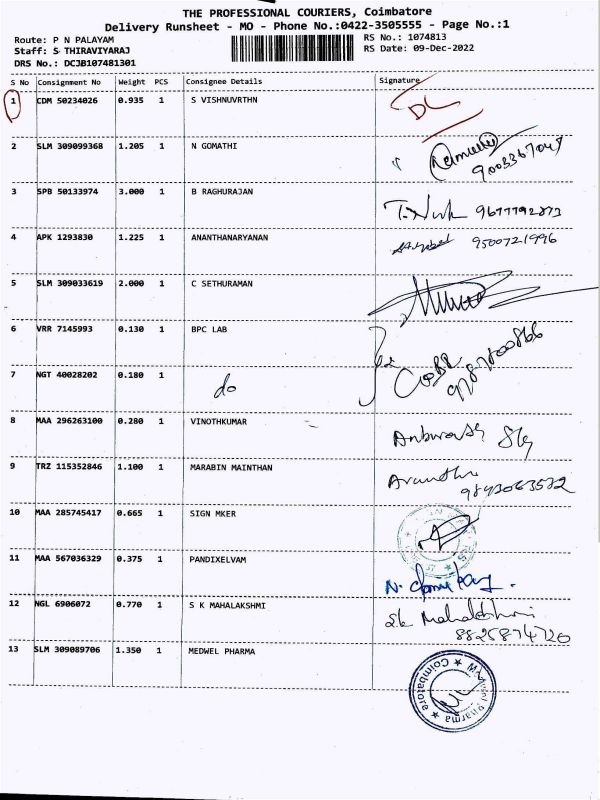 THE PROFESSIONAL COURIERS, Coimbatore
Delivery Runsheet - MO - Phone No.:0422-3505555 - Page No.:1
Route: P N PALAYAM RS No.: 1074813
Staff: S THIRAVIYARAJ RS Date: 09-Dec-2022
DRS No.: DCJB107481301
S No Consignment No Weight PCS Consignee Details Signature
1 CDM 50234026 0.935 1 S VISHNUVRTHN DL
2 SLM 309099368 1.205 1 N GOMATHI
9003367047
3 SPB 50133974 3.000 1 B RAGHURAJAN 9677792873
4 APK 1293830 1.225 1 ANANTHANARYANAN 9500721996
5 SLM 309033619 2.000 1 C SETHURAMAN
6 VRR 7145993 0.130 1 BPC LAB
7 NGT 40028202 0.180 1 do
8 MAA 296263100 0.280 1 VINOTHKUMAR
9 TRZ 115352846 1.100 1 MARABIN MAINTHAN
9843063532
10 MAA 285745417 0.665 1 SIGN MKER
11 MAA 567036329 0.375 1 PANDIXELVAM
12 NGL 6906072 0.770 1 S K MAHALAKSHMI S.k Mahalakshmi
8825874720
13 SLM 309089706 1.350 1 MEDWEL PHARMA
Coimbatore